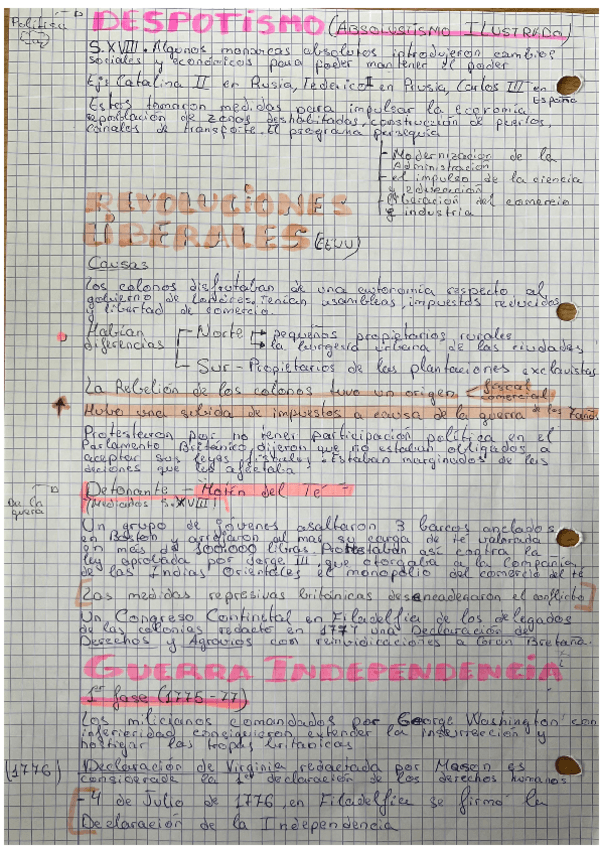 Política
DESPOTISMO (ABSOLUTISMO ILUSTRADO)
S.XVIII. Algunos monarcas absolutos introdujeron cambios
sociales y económicos para poder mantener el poder
Ej: Catalina II en Rusia, Federico II en Prusia, Carlos III en
España
Estos tomaron medidas para impulsar la economía
repoblación de zonas deshabitadas, construcción de puertos,
canales de transporte. El programa perseguía
- Modernización de la
administración
- el impulso de la ciencia
y educación
- liberación del comercio
e industria
REVOLUCIONES
LIBERALES (EEUU)
Causas
Los colonos disfrutaban de una autonomía respecto al
gobierno de Londres. Tenían asambleas, impuestos reducidos
y libertad de comercio.
Habían
diferencias
Norte pequeños propietarios rurales
la burgesía urbana de las ciudades
Sur - Propietarios de las plantaciones esclavistas
La Rebelión de los colonos tuvo un origen fiscal
comercial
Hubo una subida de impuestos a causa de la guerra de los 7 años
Protestaron por no tener participación política en el
Parlamento Británico, dijeron que no estaban obligados a
aceptar sus leyes fiscales. Estaban marginados de las
que les afectaba
Detonante - Motín del Té
(Mediados S.XVIII)
guerra
Un grupo de jóvenes asaltaron 3 barcos anclados
en Boston y arrojaron al mar su carga de té valorada
en más de 100.000 libras. Protestaban así contra la
ley aprobada por Jorge III que otorgaba a la Compañía
de las Indias Orientales el monopolio del comercio del té
Las medidas represivas británicas desencadenaron el conflicto
Un Congreso Continetal en Filadelfia de los delegados
de las colonias redactó en 1777 una Declaración de
Derechos y Agravios con reinvidicaciones a Gran Bretaña.
GUERRA INDEPENDENCIA
1º fase (1775-77)
Los milicianos comandados por George Washington con
inferioridad consiguieron extender la insurrección y
hostigar las tropas británicas
(1776) Declaración de Virginia redactada por Mason es
considerada la 1º declaración de los derechos humanos
- 4 de Julio de 1776, en Filadelfia se firmo la
Declaración de la Independencia